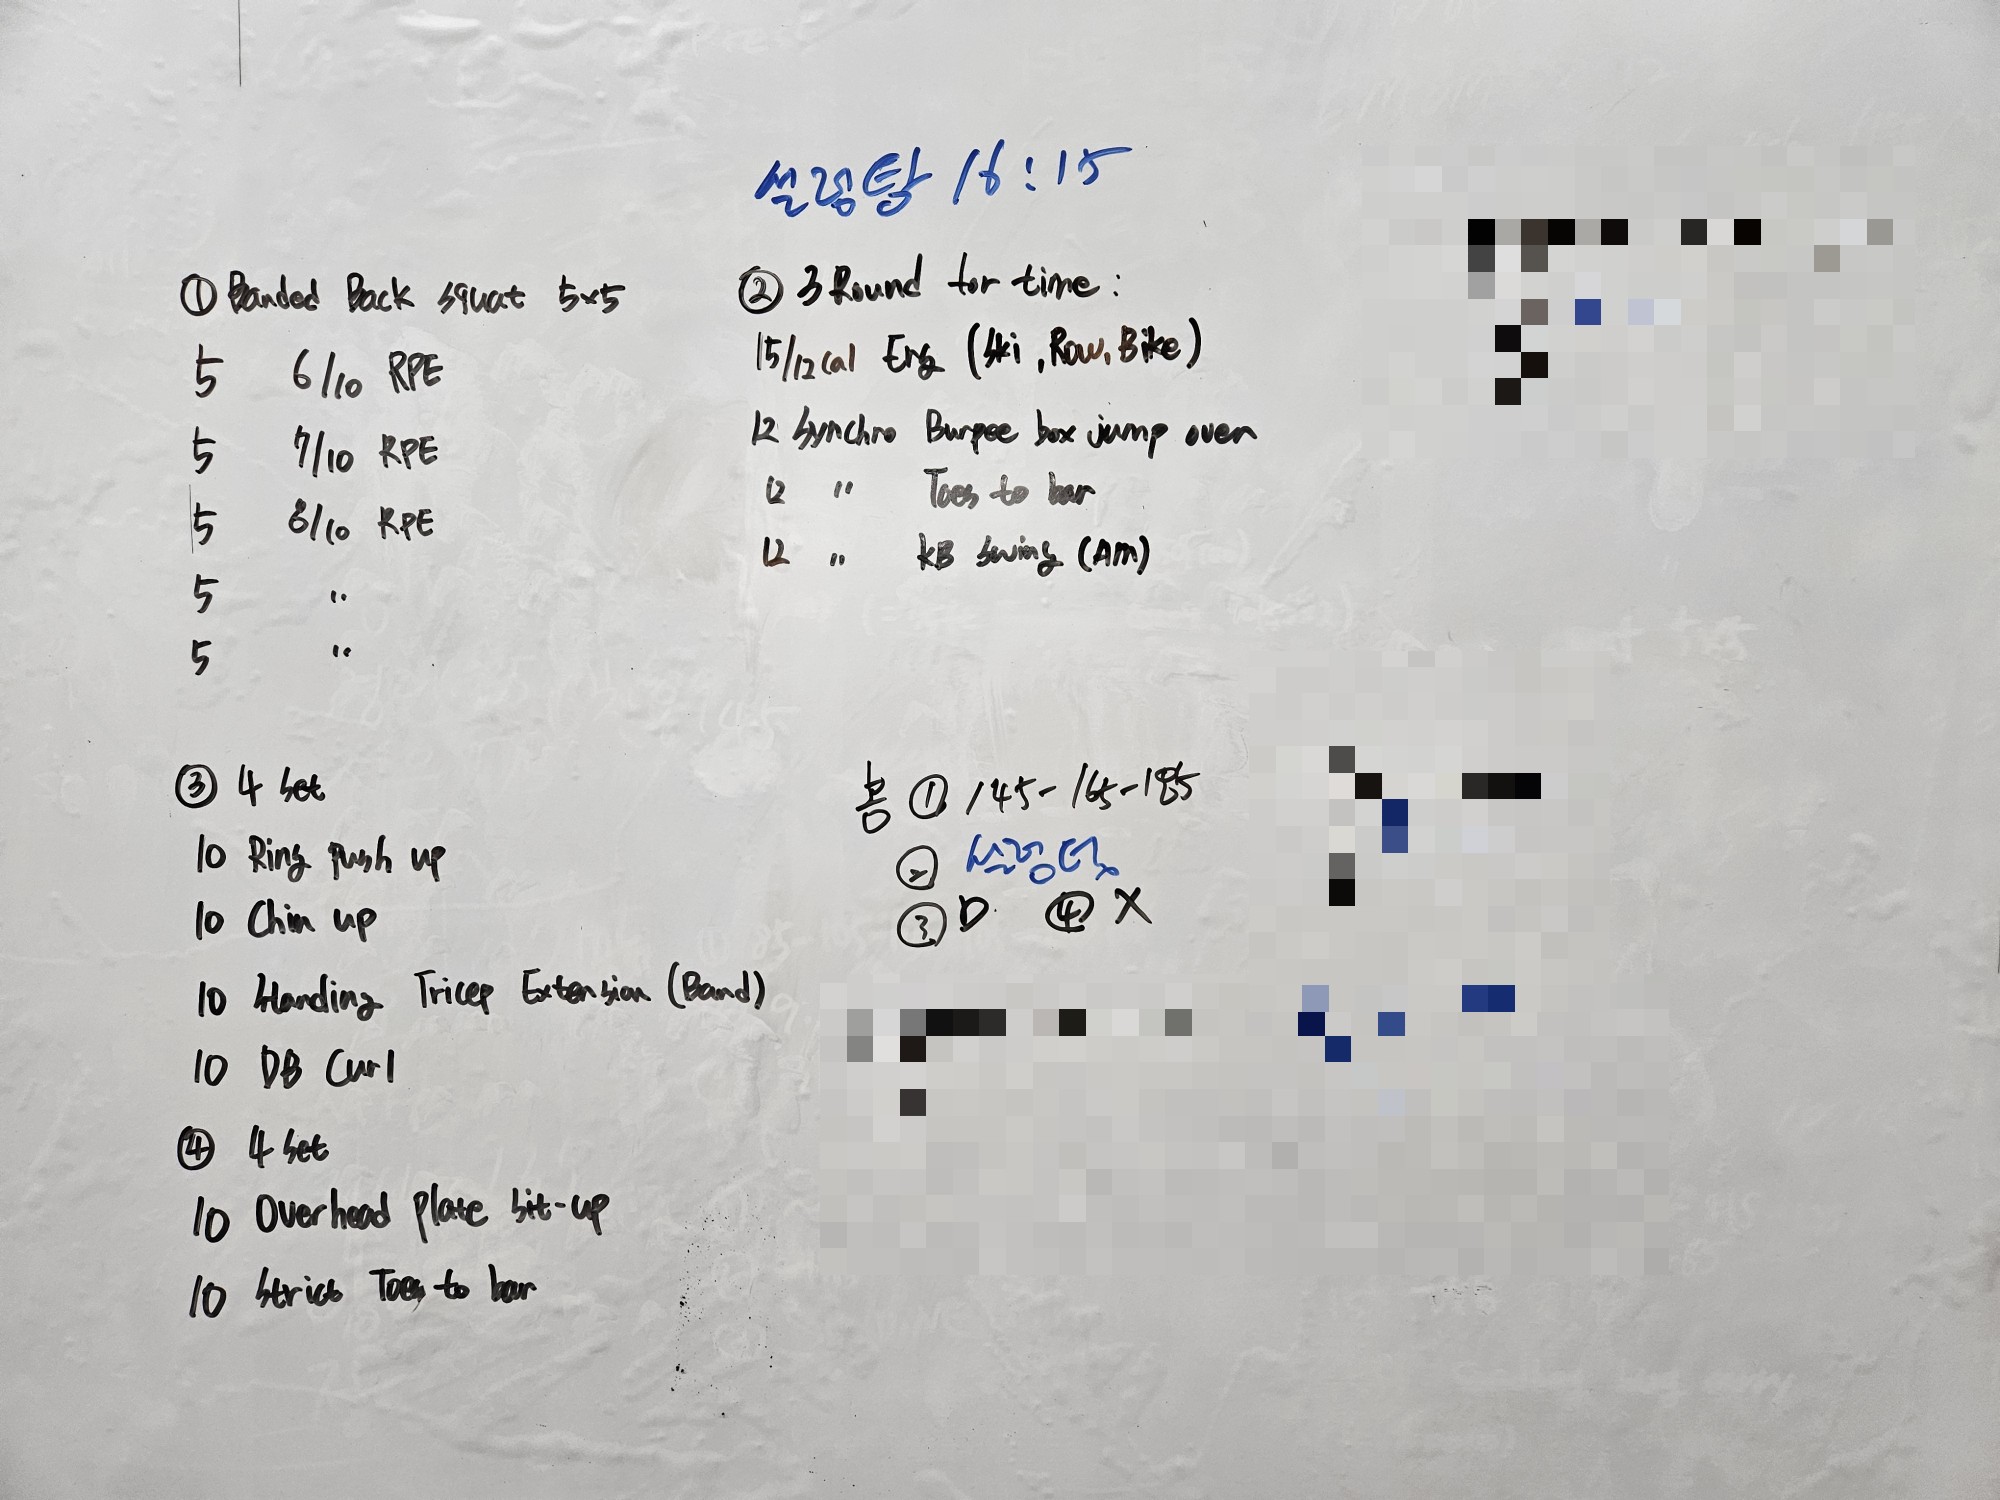 설렁탕 16:15
① Banded Back squat 5x5
5 6/10 RPE
5 7/10 RPE
5 8/10 RPE
5 〃
5 〃
② 3 Round for time:
15/12cal Erg (Ski, Row, Bike)
12 Synchro Burpee box jump over
12 〃 Toes to bar
12 〃 KB swing (Am)
③ 4 set
10 Ring push up
10 Chin up
10 Standing Tricep Extension (Band)
10 DB Curl
④ 4 set
10 Overhead plate sit-up
10 Strict Toes to bar
봄 ① 145-165-185
②
③ D. ④ X